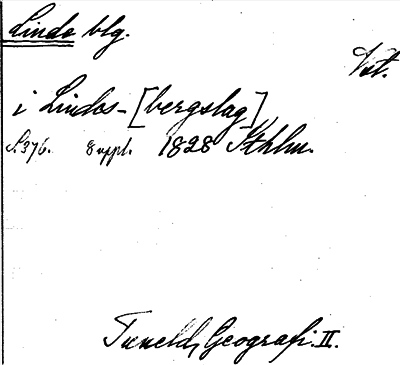 Linde blg.
Vst.
i Lindes-[bergslag]
S. 376. 8 uppl. 1828 Sthlm.
Tuneld, Geografi. II.